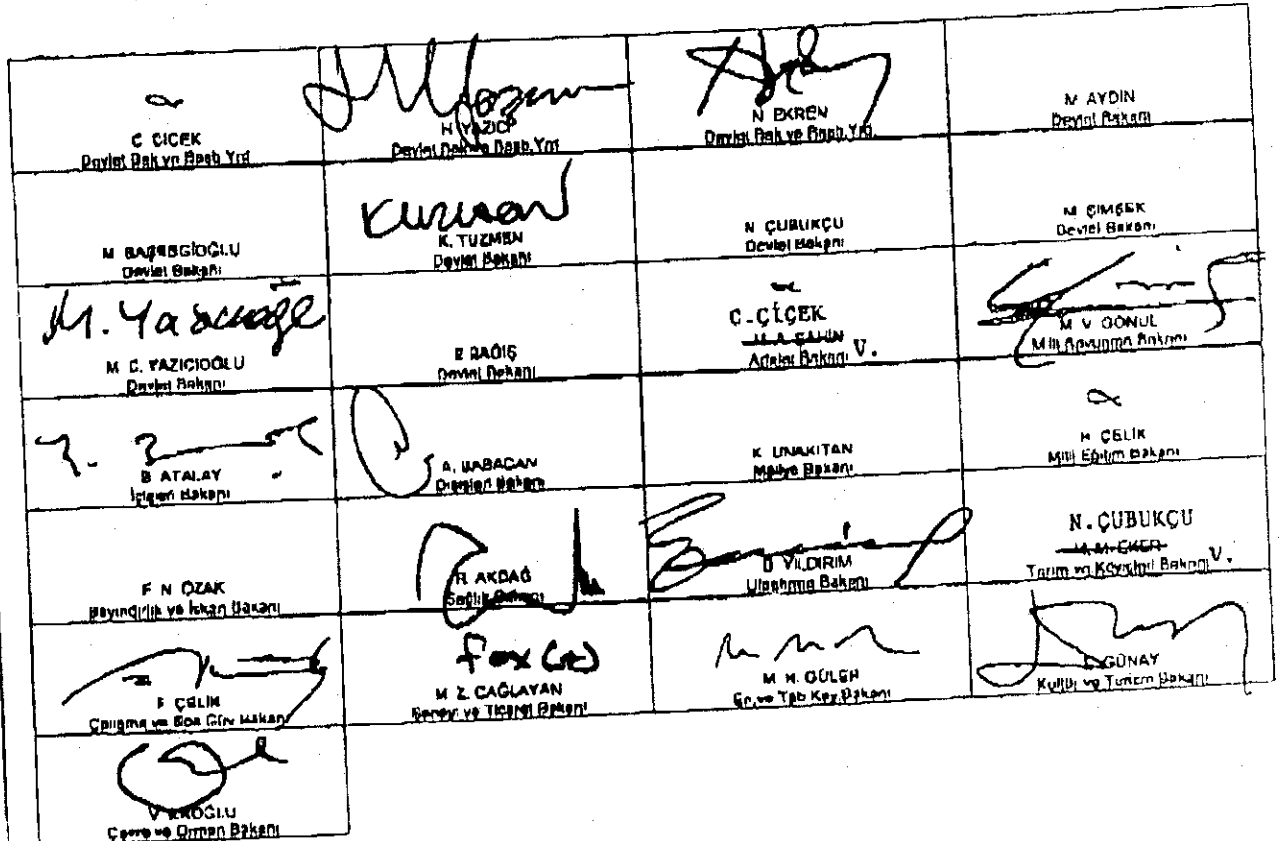 C. ÇİÇEK
Devlet Bak ve Başb. Yrd
H. YAZICI
Devlet Bak ve Başb. Yrd
N. EKREN
Devlet Bak ve Başb. Yrd
M. AYDIN
Devlet Bakanı
M. BAŞESGİOĞLU
Devlet Bakanı
K. TUZMEN
Devlet Bakanı
N. ÇUBUKÇU
Devlet Bakanı
M. ŞİMŞEK
Devlet Bakanı
M. Yazıcıoğlu
M. C. YAZICIOĞLU
Devlet Bakanı
E. BAĞIŞ
Devlet Bakanı
C.ÇİÇEK
M.A. ŞAHİN
Adalet Bakanı V.
M. V. GÖNÜL
Milli Savunma Bakanı
B. ATALAY
İçişleri Bakanı
A. BABACAN
Dışişleri Bakanı
K. UNAKITAN
Maliye Bakanı
H. ÇELİK
Milli Eğitim Bakanı
F. N. ÖZAK
Bayındırlık ve İskan Bakanı
R. AKDAĞ
Sağlık Bakanı
B. YILDIRIM
Ulaştırma Bakanı
N.ÇUBUKÇU
M. M. EKER
Tarım ve Köyişleri Bakanı V.
F. ÇELİK
Çalışma ve Sos Güv Bakanı
M. Z. ÇAĞLAYAN
Sanayi ve Ticaret Bakanı
M. H. GÜLER
En. ve Tab Kay. Bakanı
E. GÜNAY
Kültür ve Turizm Bakanı
V. EROĞLU
Çevre ve Orman Bakanı